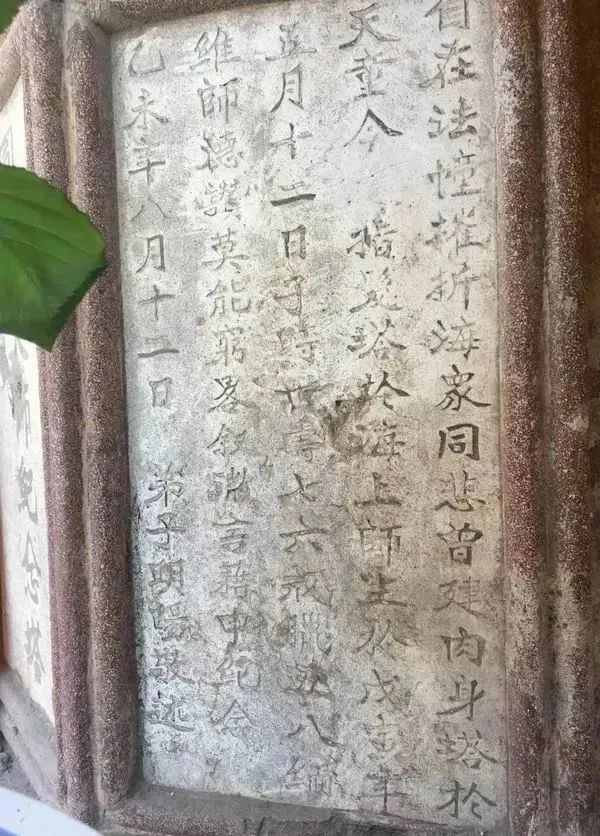 自在法幢摧折海衆同悲曾建肉身塔於
天童今 髮塔於海上師生於戊寅年
五月十二日子時世壽七六戒臘五八緬
維師德讚莫能窮畧叙言藉申紀念
乙未年八月十二日 弟子明暘敬述
師紀念塔